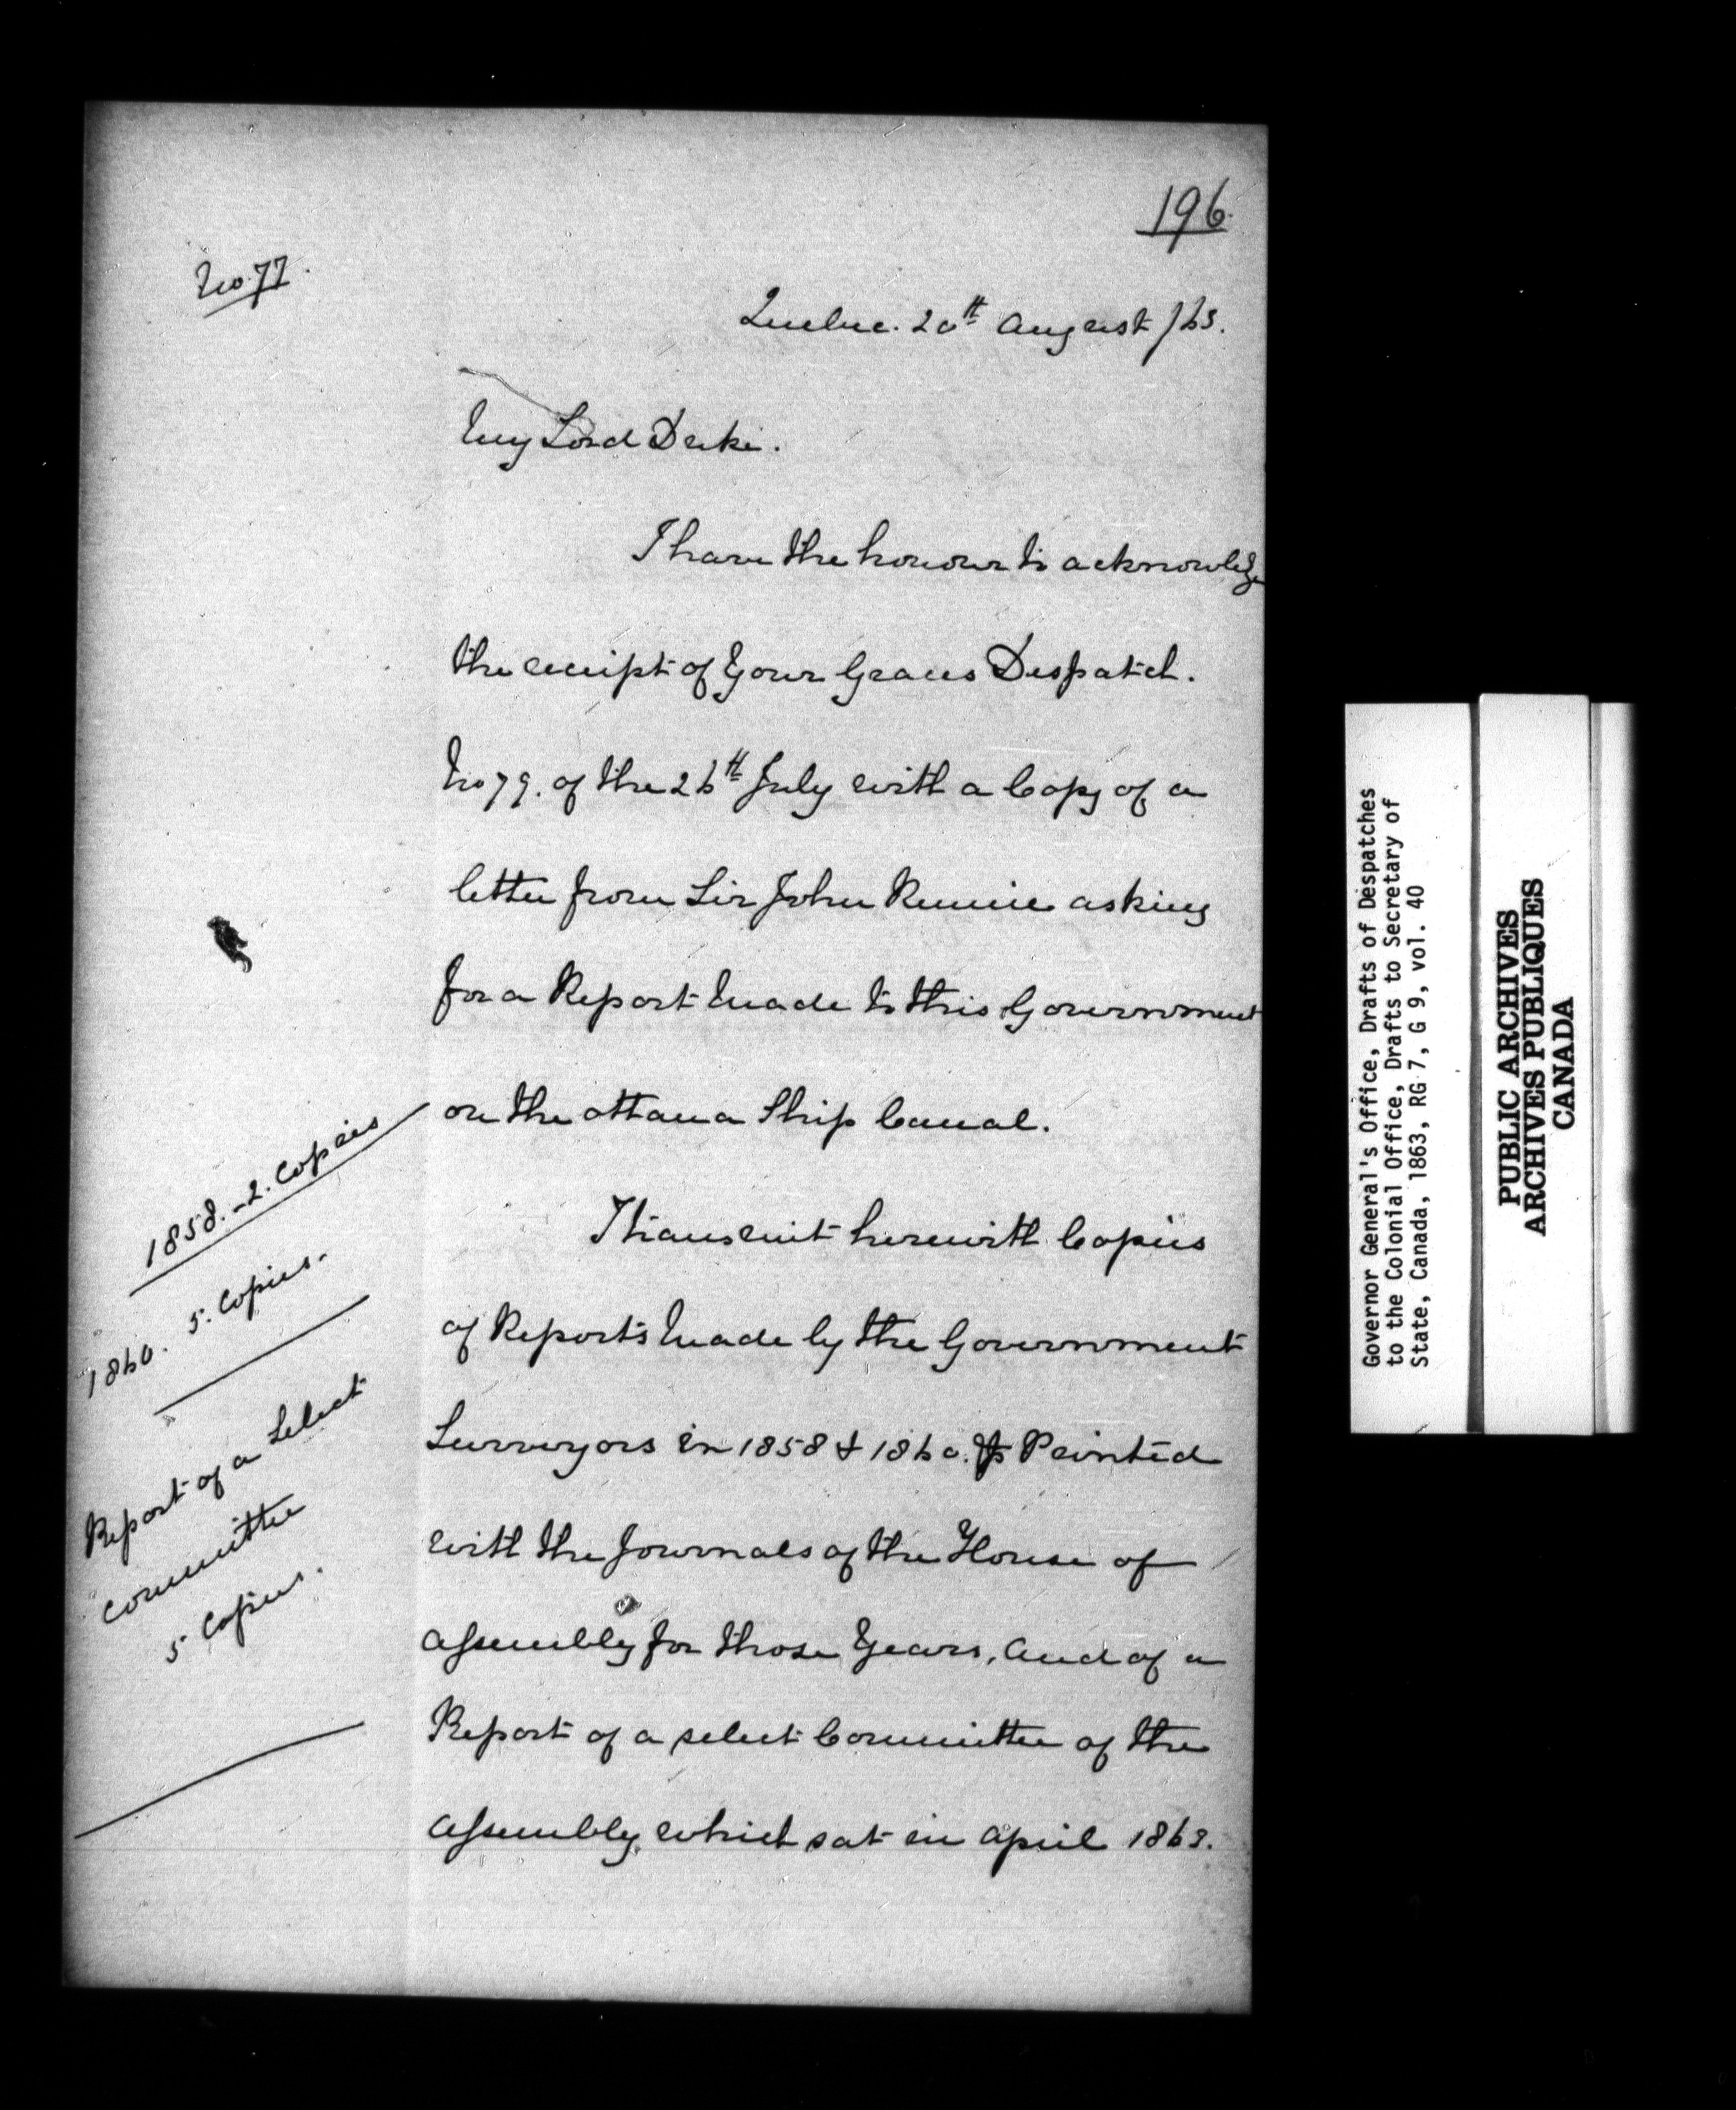 196.
No. 77.
Quebec. 20th August /63.
My Lord Duke.
I have the honour to acknowledge
the receipt of Your Graces Despatch.
No 79. of the 26th July with a Copy of a
letter from Sir John Rennie asking
for a Report made to this Government
on the Ottawa Ship Canal.
I transmit herewith Copies
of Reports made by the Government
Surveyors in 1858 & 1860. Printed
with the Journals of the House of
Assembly for those Years, and of a
Report of a select Committee of the
Assembly which sat in April 1863.
1858. - 2. Copies
1860. 5. Copies.
Report of a Select
Committee
5 Copies.
Governor General's Office, Drafts of Despatches
to the Colonial Office, Drafts to Secretary of
State, Canada, 1863, RG 7, G 9, vol. 40
PUBLIC ARCHIVES
ARCHIVES PUBLIQUES
CANADA